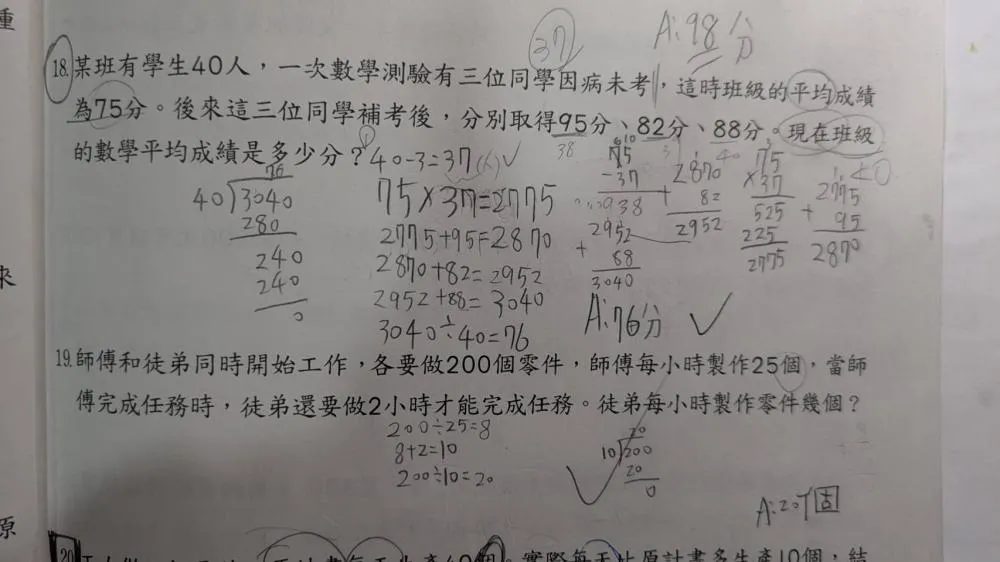 重
A:98分
37
18.某班有學生40人，一次數學測驗有三位同學因病未考，這時班級的平均成績
為75分。後來這三位同學補考後，分別取得95分、82分、88分。現在班級
的數學平均成績是多少分？
38
40
40-3=37(人)
75×37=2775
2775+95=2870
2870+82=2952
2952+88=3040
3040÷40=76
76
40)3040
280
240
240
0
75
-37
938
2952
+ 88
3040
2870
+ 82
2952
75
×37
525
225
2775
2775
+ 95
2870
A:76分
來
19.師傅和徒弟同時開始工作，各要做200個零件，師傅每小時製作25個，當師
傅完成任務時，徒弟還要做2小時才能完成任務。徒弟每小時製作零件幾個？
200÷25=8
8+2=10
200÷10=20
20
10)200
20
0
A:20個
原
20